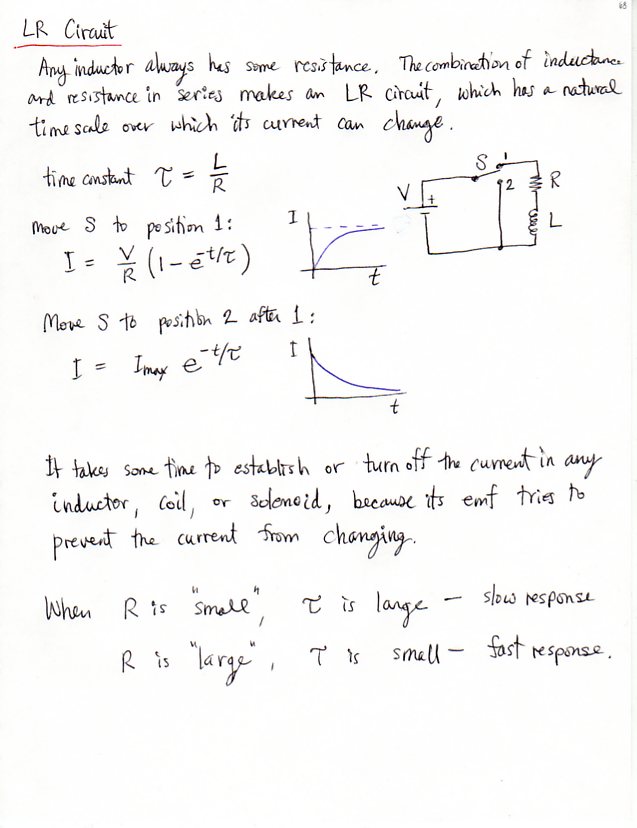 68
LR Circuit
Any inductor always has some resistance. The combination of inductance
and resistance in series makes an LR circuit, which has a natural
time scale over which its current can change.
time constant τ = L/R
S 1
2 R
V +
L
Move S to position 1:
I = V/R (1 - e^-t/τ)
I
t
Move S to position 2 after 1:
I = Imax e^-t/τ
I
t
It takes some time to establish or turn off the current in any
inductor, coil, or solenoid, because its emf tries to
prevent the current from changing.
When R is "small", τ is large — slow response
R is "large", τ is small — fast response.